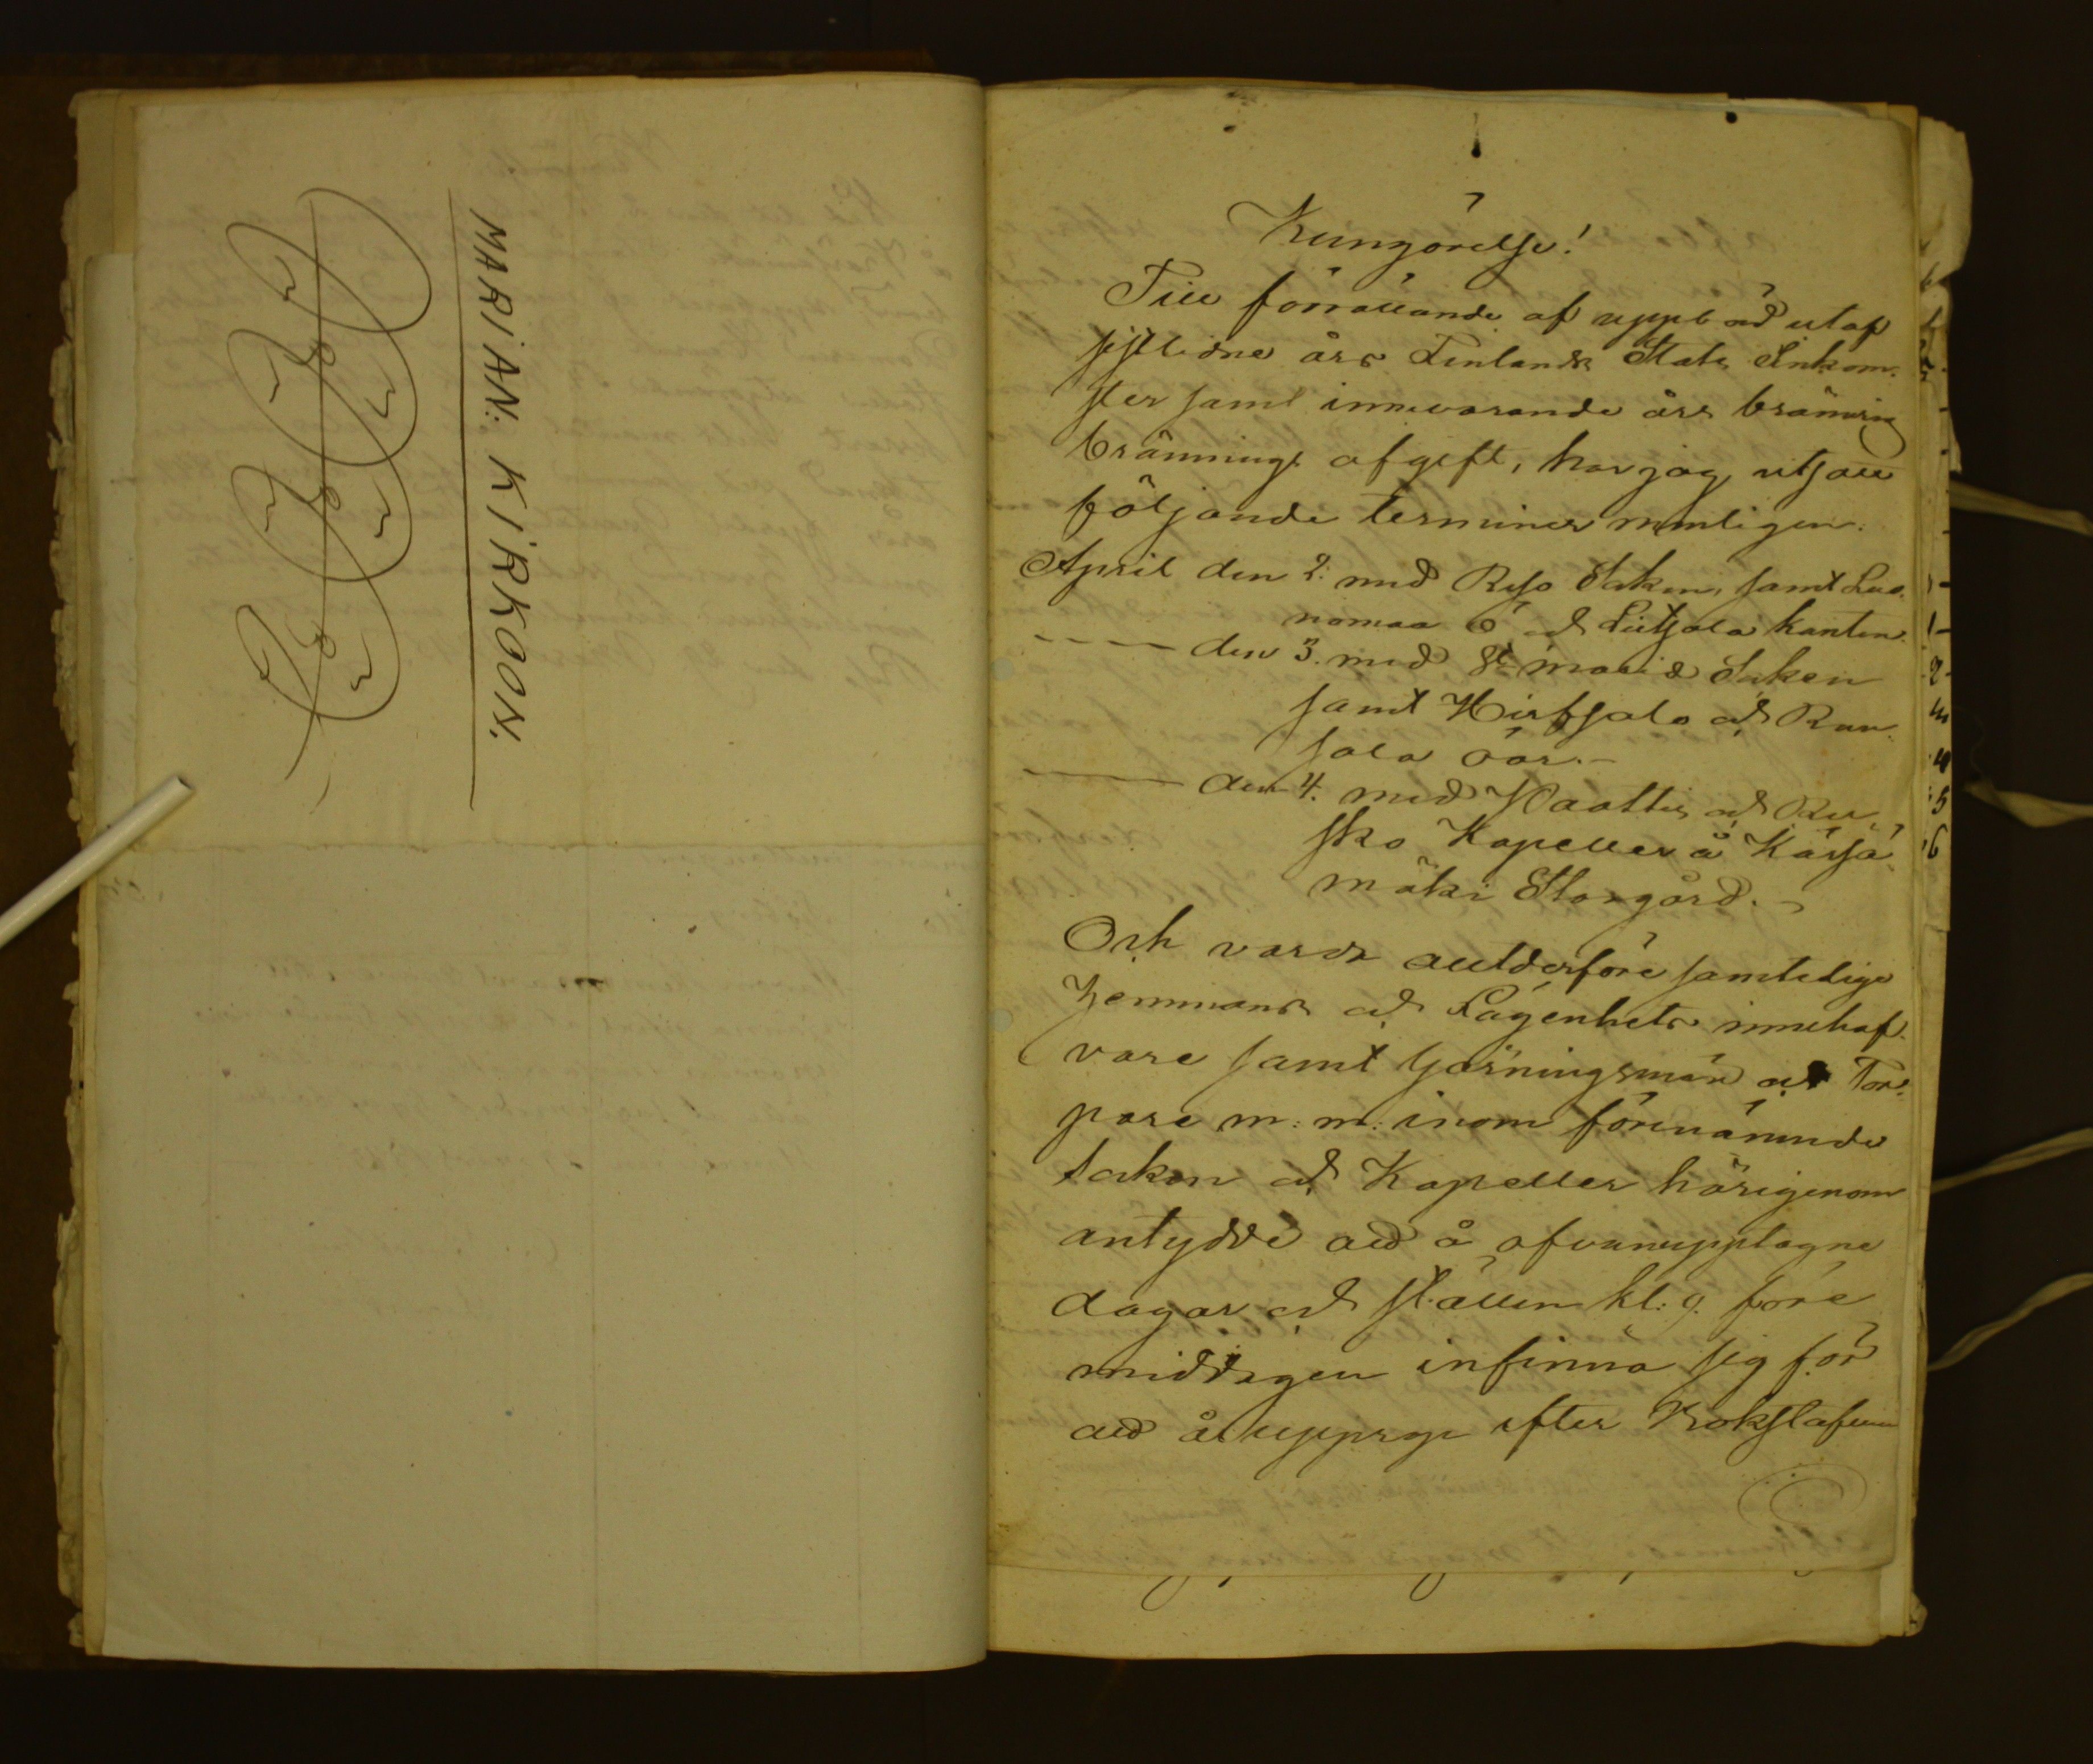 MARIAN: KIRKOON.
Kungörelse!
Till förrättande af uppbörd utaf
sistlidne års Finlands Stats Inkom-
ster samt innevarande års bränvins
brännings afgift, har jag utsatt
följande terminer nemligen:
April den 2: med Reso Soken, samt Luo-
nomaa ö och Luitsola kanten.
---- den 3. med St Mariæ Soken
samt Hirfsalo och Run-
sala öar.-
---- den 4. med Paattis och Ru-
sko Kapeller å Kärsä-
mäki Storgård.-
Och varda alltderföre samtelige
Hemmans och Lägenhets innehaf-
vare samt Gärningsmän och Tor-
pare m: m: inom förenämnde
Soken och Kapeller härigenom
antydde att å ofvanupptagne
dagar och ställen kl: 9. före
middagen infinna sig för
att å upprop efter Bokstafven